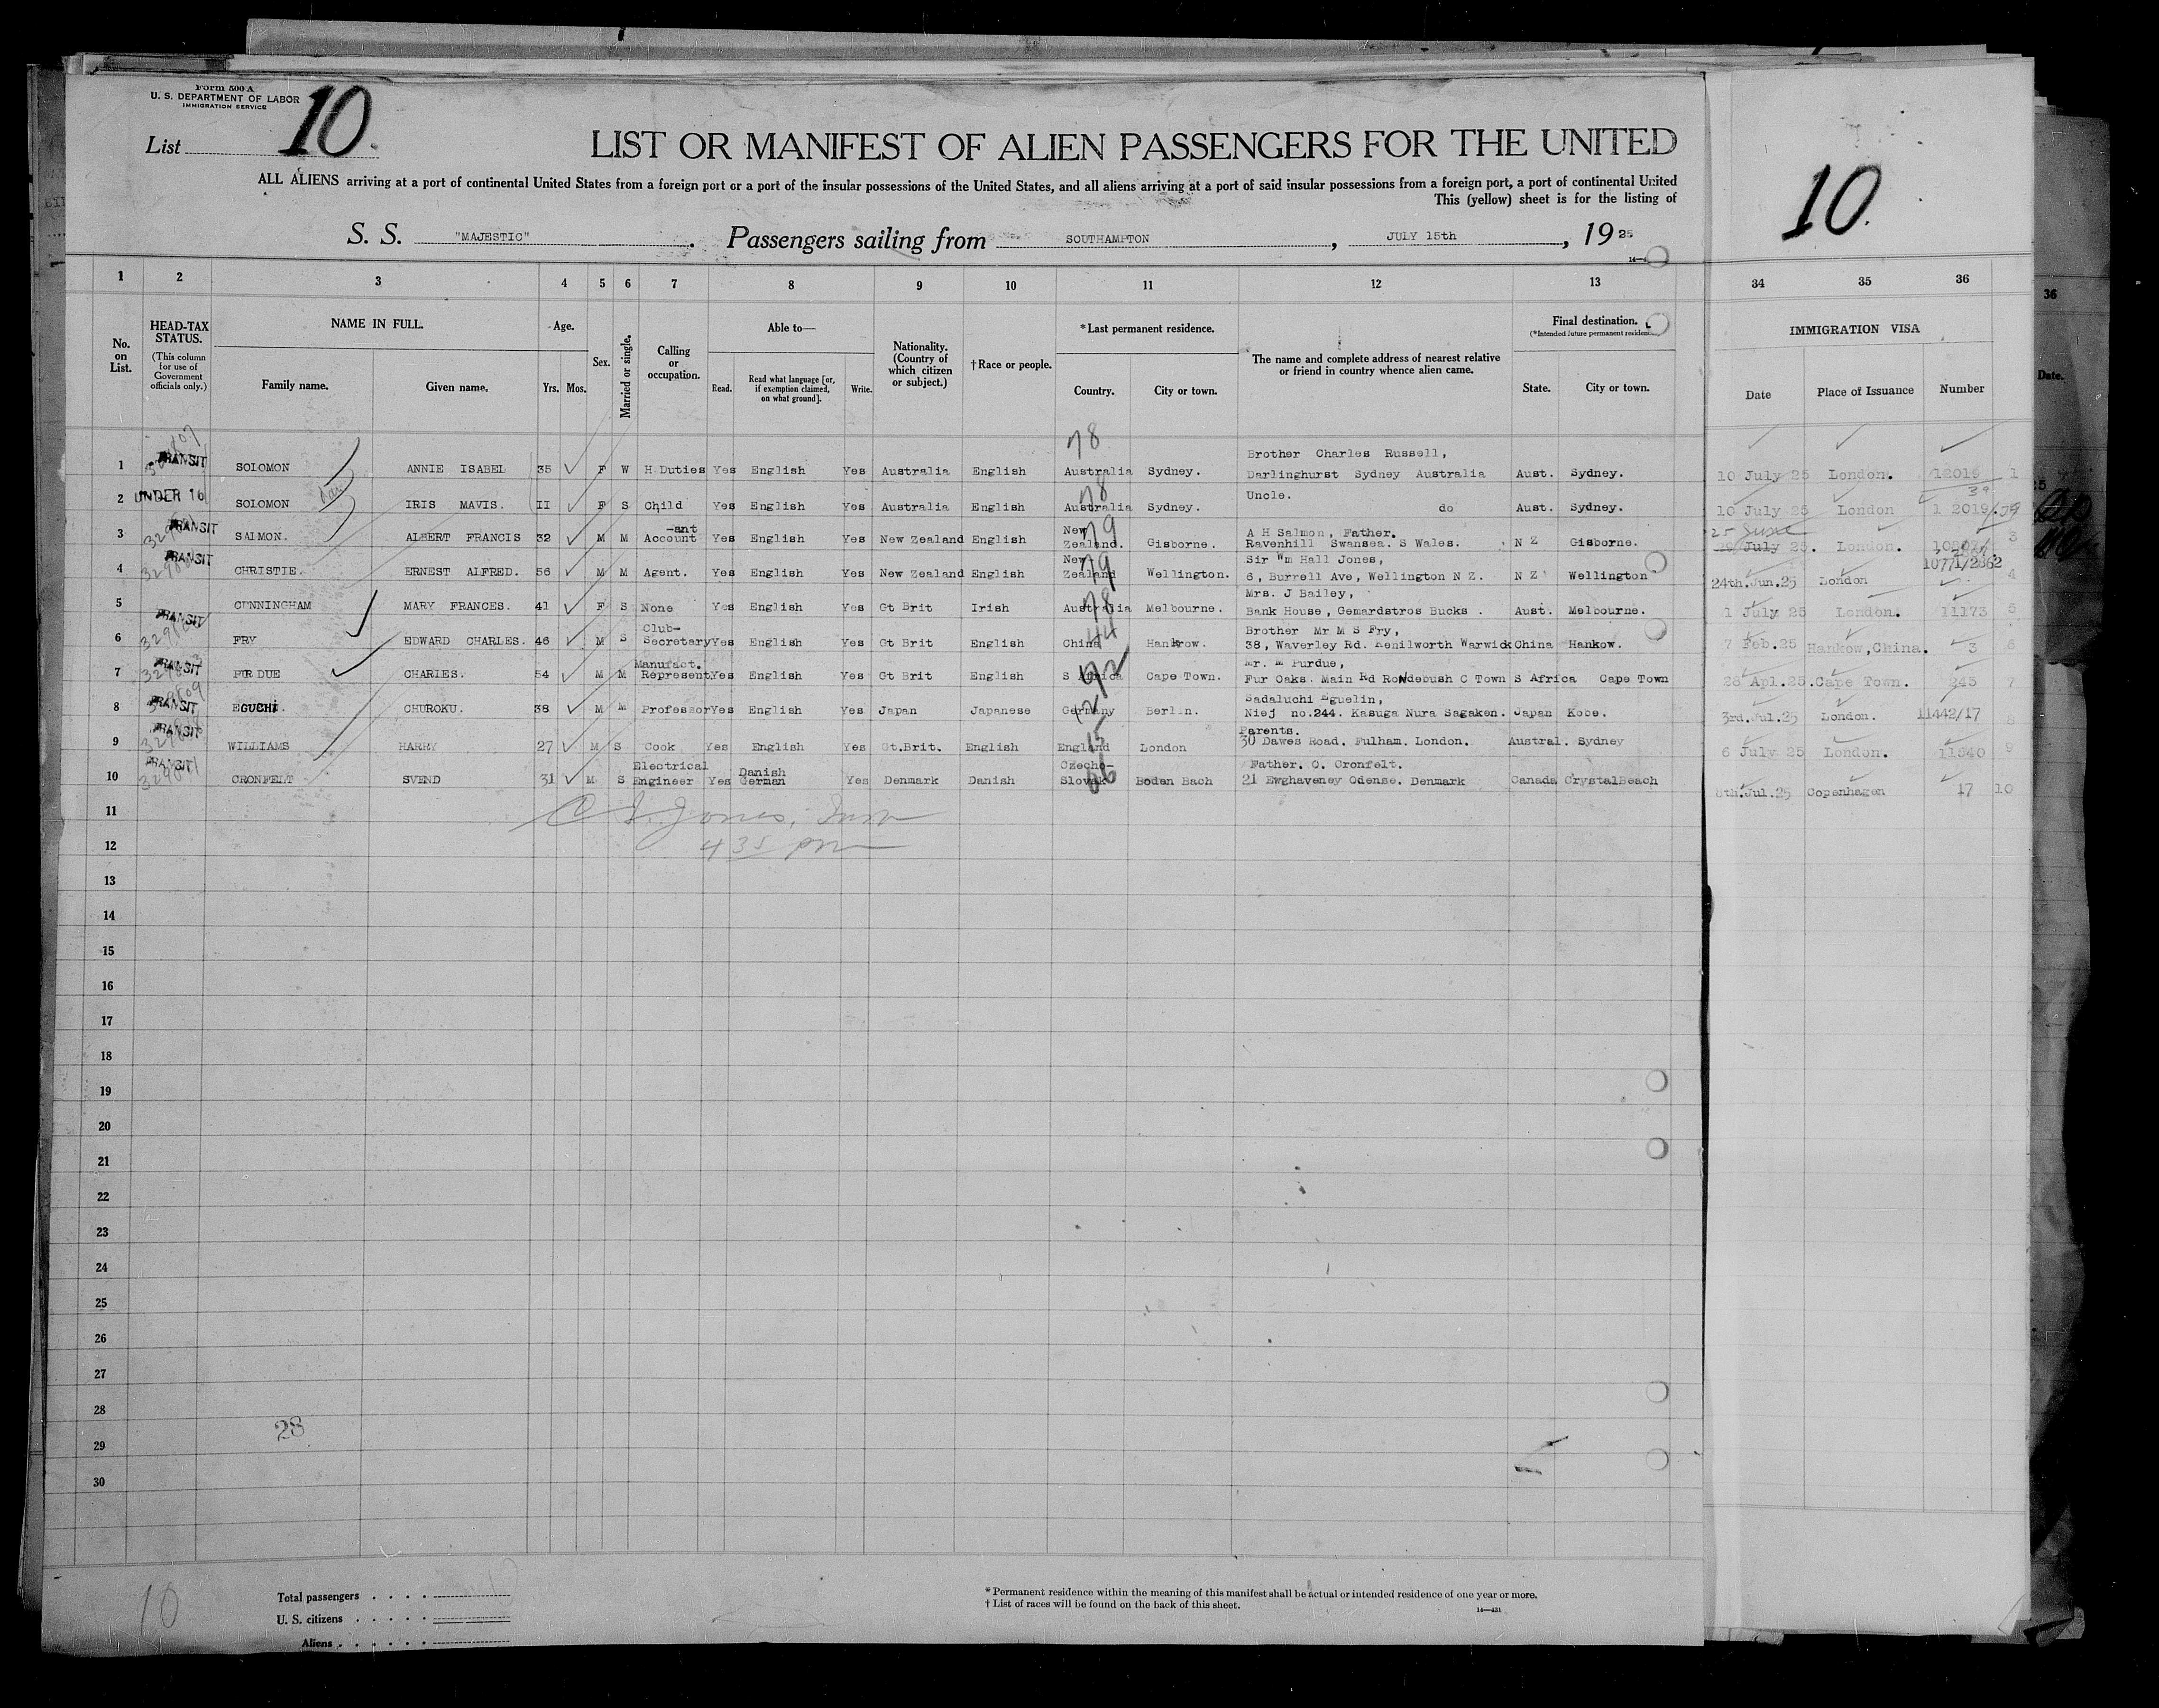 Form 500 A
U. S. DEPARTMENT OF LABOR
IMMIGRATION SERVICE
List 10.
LIST OR MANIFEST OF ALIEN PASSENGERS FOR THE UNITED
ALL ALIENS arriving at a port of continental United States from a foreign port or a port of the insular possessions of the United States, and all aliens arriving at a port of said insular possessions from a foreign port, a port of continental United
This (yellow) sheet is for the listing of
10.
S. S. "MAJESTIC". Passengers sailing from SOUTHAMPTON, JULY 15th, 1925
1 2 3 4 5 6 7 8 9 10 11 12 13 34 35 36
36
No. on List.
HEAD-TAX STATUS.
(This column for use of Government officials only.)
NAME IN FULL.
Family name. Given name.
Age.
Yrs. Mos.
Sex.
Married or single.
Calling or occupation.
Able to—
Read. Read what language [or, if exemption claimed, on what ground]. Write.
Nationality. (Country of which citizen or subject.)
†Race or people.
*Last permanent residence.
Country. City or town.
The name and complete address of nearest relative or friend in country whence alien came.
Final destination.
(*Intended future permanent residence.)
State. City or town.
IMMIGRATION VISA
Date Place of Issuance Number
Date.
78
1 TRANSIT SOLOMON ANNIE ISABEL 35 F W H Duties Yes English Yes Australia English Australia Sydney. Brother Charles Russell, Darlinghurst Sydney Australia Aust. Sydney. 10 July 25 London. 12019 1
2 UNDER 16 SOLOMON IRIS MAVIS. 11 F S Child Yes English Yes Australia English Australia 78 Sydney. Uncle. do Aust. Sydney. 10 July 25 London 1 2019/39
3 TRANSIT SALMON. ALBERT FRANCIS 32 M M Account-ant Yes English Yes New Zealand English New Zealand. 79 Gisborne. A H Salmon, Father. Ravenhill Swansea. S Wales. N Z Gisborne. 25 June July 25. London. 3
4 TRANSIT CHRISTIE. ERNEST ALFRED. 56 M M Agent. Yes English Yes New Zealand English New Zealand 79 Wellington. Sir Wm Hall Jones, 6, Burrell Ave, Wellington N Z. N Z Wellington 24th.Jun.25 London 10771/2862 4
5 CUNNINGHAM MARY FRANCES. 41 F S None Yes English Yes Gt Brit Irish Australia 78 Melbourne. Mrs. J Bailey, Bank House, Gemardstros Bucks. Aust. Melbourne. 1 July 25 London. 11173 5
6 TRANSIT FRY EDWARD CHARLES. 46 M S Club-Secretary Yes English Yes Gt Brit English China 44 Hankow. Brother Mr M S Fry, 38, Waverley Rd. Kenilworth Warwick China Hankow. 7 Feb.25 Hankow, China. 3 6
7 TRANSIT PURDUE CHARLES. 54 M M Manufact. Represent. Yes English Yes Gt Brit English S Africa 92 Cape Town. Mr. M Purdue, Fur Oaks. Main Rd Rondebush C Town S Africa Cape Town 28 Apl.25. Cape Town. 245 7
8 TRANSIT EGUCHI. CHUROKU. 38 M M Professor Yes English Yes Japan Japanese Germany 12 Berlin. Sadaluchi Eguelin, Niej no.244. Kasuga Nura Sagaken. Japan Kobe. 3rd.Jul.25 London. 11442/17 8
9 TRANSIT WILLIAMS HARRY 27 M S Cook Yes English Yes Gt.Brit. English England 15 London Parents. 30 Dawes Road. Fulham. London. Austral. Sydney 6 July 25 London. 11540 9
10 TRANSIT CRONFELT SVEND 31 M S Electrical Engineer Yes Danish German Yes Denmark Danish Czecho-Slovak 66 Boden Bach Father. O. Cronfelt. 21 Ewghaveney Odense. Denmark Canada CrystalBeach 8th.Jul.25 Copenhagen 17 10
11
12 4 35 pm
13
14
15
16
17
18
19
20
21
22
23
24
25
26
27
28
23
29
30
10
Total passengers
U. S. citizens
Aliens
* Permanent residence within the meaning of this manifest shall be actual or intended residence of one year or more.
† List of races will be found on the back of this sheet.
14—431